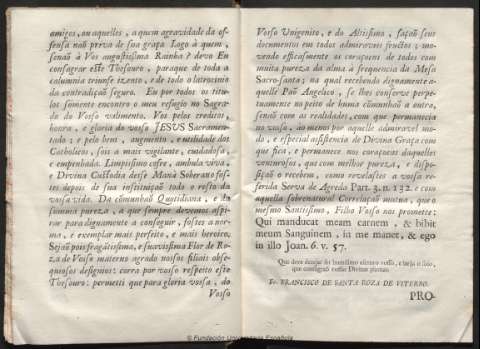 amigos, ou aquelles, a quem a gravidade da of-
fensa naõ priva de sua graça Logo à quem,
senaõ à Vos augustissima Rainha? devo Eu
consagrar este Thesouro, paraque de toda a
calumnia triunfe izento, e de todo o latrocinio
da contradiçaõ seguro. Eu por todos os titu-
los sómente encontro o meu refugio no Sagra-
do do Vosso valimento. Vos pelos creditos,
honra, e gloria do vosso JESUS Sacramen-
tado; e pelo bem, augmento, e utilidade dos
Catholicos, sois a mais vigilante, cuidadosa,
e empenhada. Limpissimo cofre, ambula viva,
e Divina Custodia desse Maná Soberano fos-
tes depois de sua instituiçaõ todo o resto da
vossa vida. Da cõmunhaõ Quotidiana, e da
summa pureza, a que sempre devemos aspi-
rar para dignamente a conseguir, fostes a nor-
ma, e exemplar mais perfeito, e mais heroico.
Sejaõ pois fragátissima, e suavissima Flor de Ro-
za de Vosso materno agrado nossos filiaes obse-
quiosos designios: corra por vosso respeito este
Thesouro: permiti que para gloria vossa, do
Vosso
Vosso Unigenito, e do Altissimo, façaõ seus
documentos em todos admiraveis fructos; mo-
vendo efficasmente os coraçoens de todos com
muita pureza da alma á frequencia da Mesa
Sacro-santa; na qual recebendo dignamente a-
quelle Paõ Angelico, se lhes conserve perpe-
tuamente no peito de huma cõmunhaõ a outra,
senaõ com as realidades, com que permanecia
no vosso, ao menos por aquelle admiravel mo-
do, e especial assistencia de Divina Graça com
que fica, e permanece nos coraçoens daquelles
venturosos, que com melhor pureza, e dispo-
siçaõ o recebem, como revelastes a vossa re-
ferida Serva de Agreda Part. 3. n. 132. e com
aquella sobrenatural Correlaçaõ mutua, que o
mesmo Santissimo, Filho Vosso nos promette:
Qui manducat meam carnem, & bibit
meum Sanguinem, in me manet, & ego
in illo Joan. 6. v. 57.
que consagrou vossas Divinas plantas
Fr. FRANCISCO DE SANTA ROZA DE VITERBO.
PRO-
© Fundación Universitaria Española